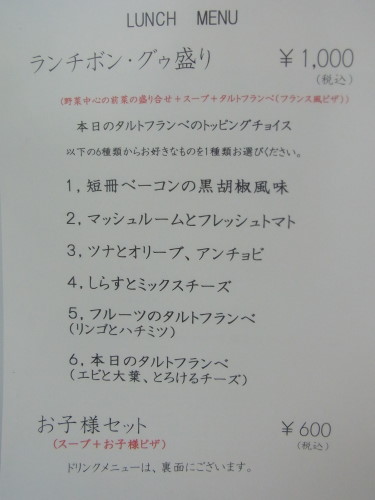 LUNCH MENU
ランチボン・グゥ盛り ￥1,000
(税込)
(野菜中心の前菜の盛り合せ＋スープ＋タルトフランベ(フランス風ピザ))
本日のタルトフランベのトッピングチョイス
以下の6種類からお好きなものを1種類お選びください。
1, 短冊ベーコンの黒胡椒風味
2, マッシュルームとフレッシュトマト
3, ツナとオリーブ、アンチョビ
4, しらすとミックスチーズ
5, フルーツのタルトフランベ
(リンゴとハチミツ)
6, 本日のタルトフランベ
(エビと大葉、とろけるチーズ)
お子様セット ￥600
(スープ＋お子様ピザ) (税込)
ドリンクメニューは、裏面にございます。